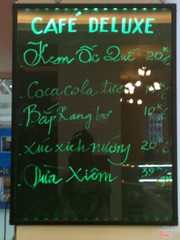 CAFÉ DELUXE
Kem Ốc Quế 20K
Coca cola tươi
Bắp Rang bơ 10K
xúc xích nướng 20K
Dừa Xiêm